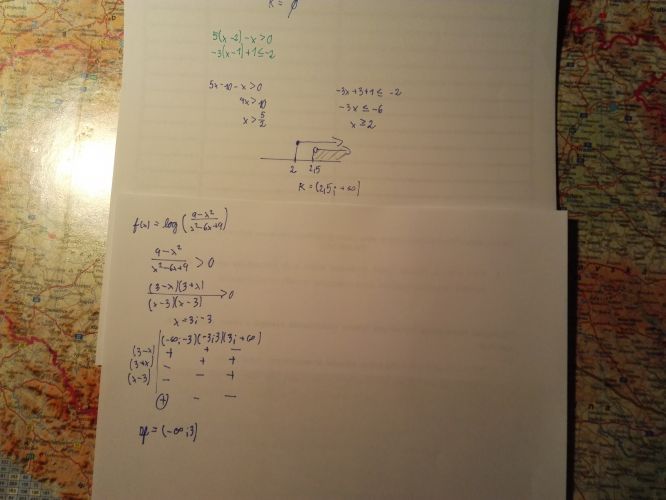 K = ∅
5(x-2)-x>0
-3(x-1)+1≤-2
5x-10-x>0
4x>10
x>5/2
-3x+3+1≤ -2
-3x ≤ -6
x ≥ 2
2 2,5
K = (2,5; +∞)
f(x) = log (9-x²/x²-6x+9)
9-x²/x²-6x+9 > 0
(3-x)(3+x)/(x-3)(x-3) >0
x=3; -3
(-∞;-3)(-3;3)(3;+∞)
(3-x) + + -
(3+x) - + +
(x-3) - - +
+ - -
Df = (-∞;3)